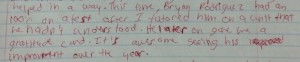 helped in a way. This time, Bryan Rodriguez had an
100% on a test after I tutored him on a unit that
he hadn't understood. He later on gave me a
gratitude card. It's awesome seeing his
improvement over the year.